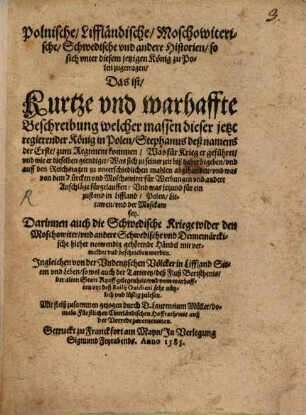 3
Polnische/ Liffländische/ Moschowiteri-
sche/ Schwedische vnd andere Historien/ so
sich vnter diesem jetzigen König zu Po-
len zugetragen/
Das ist/
Kurtze vnd warhaffte
Beschreibung welcher massen dieser jetzt
regierender König in Polen/ Stephanus deß namens
der Erste/ zum Regiment kommen/ Was für Krieg er geführet/
vnd wie er dieselben geendiget/ Was sich zu seiner zeit biß daher begeben/ vnd
auff den Reichstagen zu vnterschiedlichen mahlen abgehandlet/ vnd was
von dem Türcken vnd Moschowiter für Werbungen vnd andere
Anschläge fürgelauffen/ Vnd was jetzund für ein
zustand in Liffland/ Polen/ Lit-
tawen/ vnd der Moschkaw
sey.
Darinnen auch die Schwedische Kriege wider den
Moschowiter/ vnd andere Schwedische vnd Dennemärcki-
sche hieher notwendig gehörende Händel mit ver-
meldet vnd beschrieben werden.
Ingleichen von der Vndeutschen Völcker in Liffland Sit-
ten vnd Leben/ so wol auch der Tartern/ deß Fluß Boristhenis/
der alten Statt Kyoff gelegenheit/ vnd vom warhaff-
ten ort deß Exilij Ouidiani sehr nütz-
lich vnd lüstig zulesen.
Mit fleiß zusammen gezogen durch D. Laurentium Müller/ da-
mals Fürstlichen Churländischen Hoffrath/ wie auß
der Vorrede zuvernemmen.
Getruckt zu Franckfort am Mayn/ In Verlegung
Sigmund Feyrabends. Anno 1585.